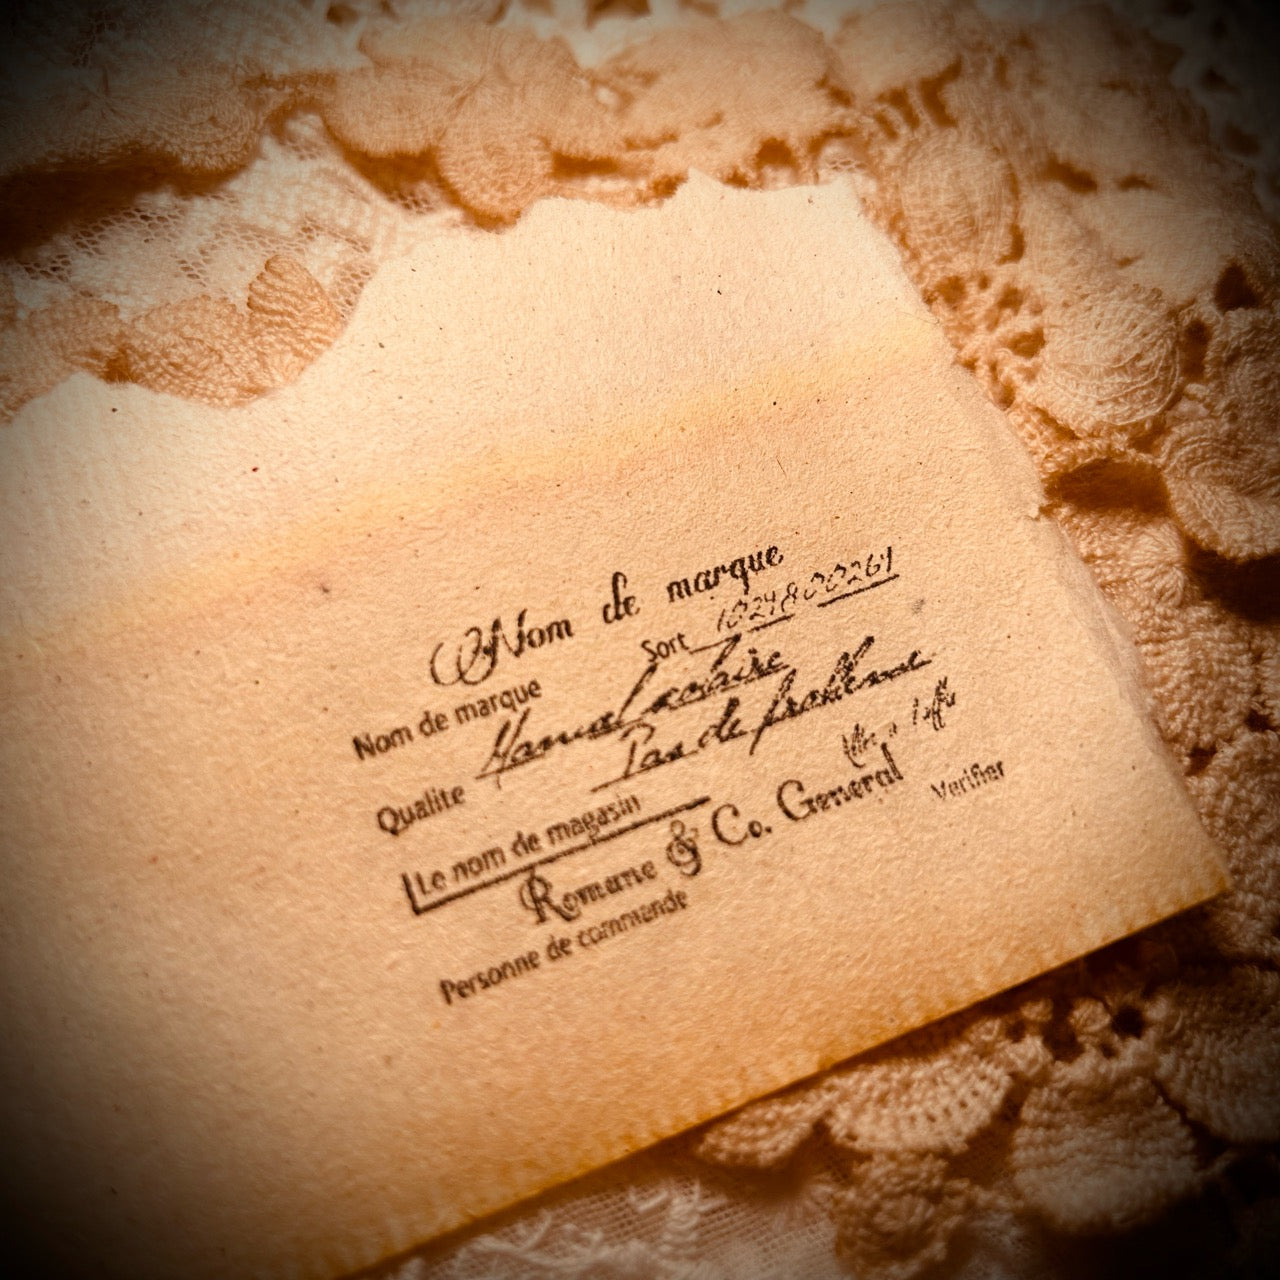 Nom de marque
Sort 1021800261
Nom de marque
Manuel
Qualite Pas de probleme
Le nom de magasin
Romane & Co. General
Verifier
Personne de commande